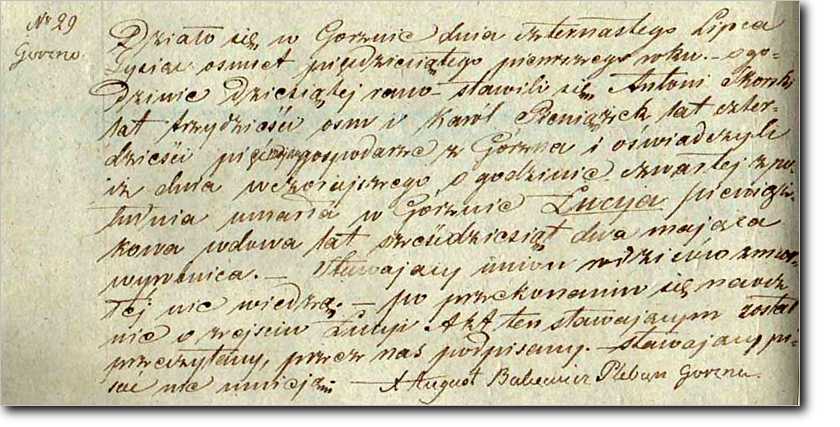 Nr 29
Gorzno.
Działo się w Gorznie dnia czternastego Lipca
Tysiac osmset piędziesiątego pierwszego roku. – o go-
dzinie dziesiątej rano – stawili się Antoni Skorski
lat trzydzieści osm i Karól Pieniążek lat czter-
dzieści pięć gospodarze z Górzna i oświadczyli
iż dnia wczorajszego o godzinie czwartej z po-
łudnia umarła w Górznie Lucyja pieniąż-
kowa wdowa lat sześćdziesiąt dwa mająca
wyrobnica. – Stawający imion rodziców zmar-
łej nie wiedzą. – po przekonaniu się naocz
nie o zejściu Lucyi Akt ten stawającym został
przeczytany, przez nas podpisany. – stawający pi-
sać nie umieją. – X August Pleban Gorzna